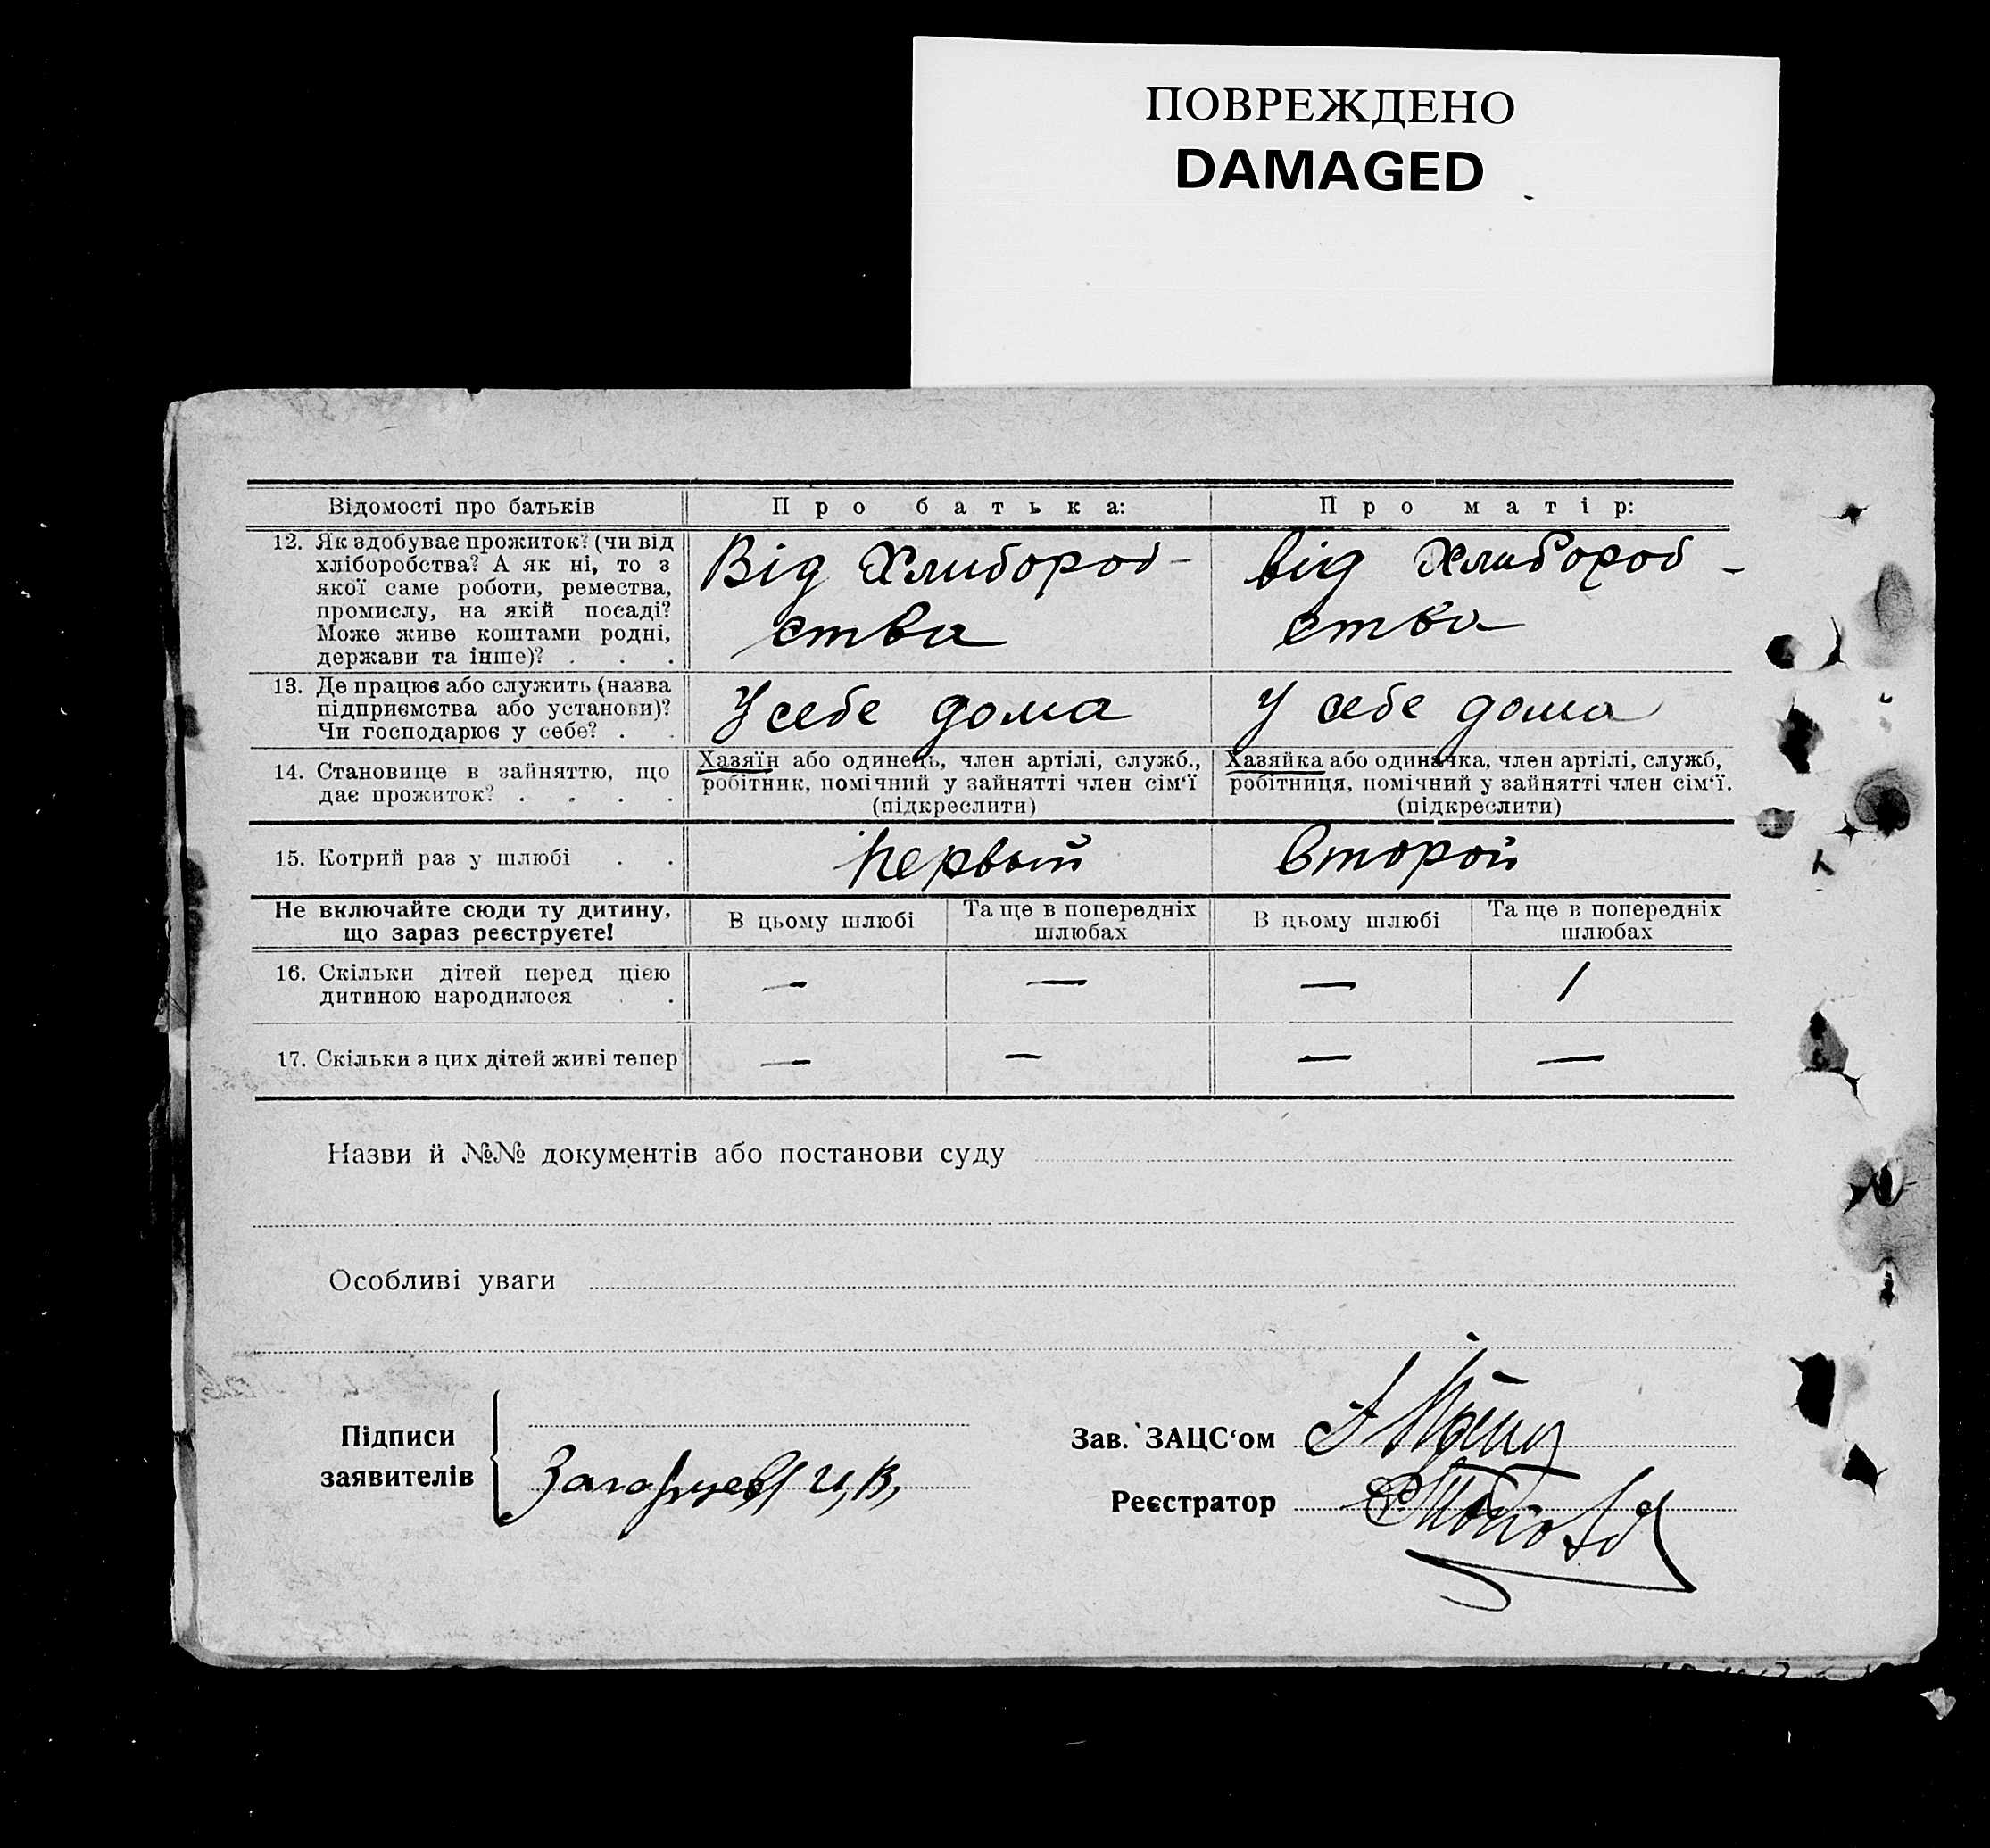 ПОВРЕЖДЕНО
DAMAGED
Відомості про батьків
Про батька:
Про матір:
12. Як здобуває прожиток? (чи від
хліборобства? А як ні, то з
якої саме роботи, ремества,
промислу, на якій посаді?
Може живе коштами родні,
держави та інше)? . . .
Від Хлибороб-
ства
від Хлибороб-
ства
13. Де працює або служить (назва
підприємства або установи)?
Чи господарює у себе? . .
У себе дома
У себе дома
14. Становище в зайняттю, що
дає прожиток? . . . .
Хазяїн або одинець, член артілі, служб.,
робітник, помічний у зайнятті член сім'ї
(підкреслити)
Хазяйка або одиначка, член артілі, служб,
робітниця, помічний у зайнятті член сім'ї.
(підкреслити)
15. Котрий раз у шлюбі . .
первый
второй
Не включайте сюди ту дитину,
що зараз реєструєте!
В цьому шлюбі
Та ще в попередніх
шлюбах
В цьому шлюбі
Та ще в попередніх
шлюбах
16. Скільки дітей перед цією
дитиною народилося . .
— — — 1
17. Скільки з цих дітей живі тепер
— — — —
Назви й №№ документів або постанови суду
Особливі уваги
Підписи
заявителів
Зав. ЗАЦС'ом
Реєстратор